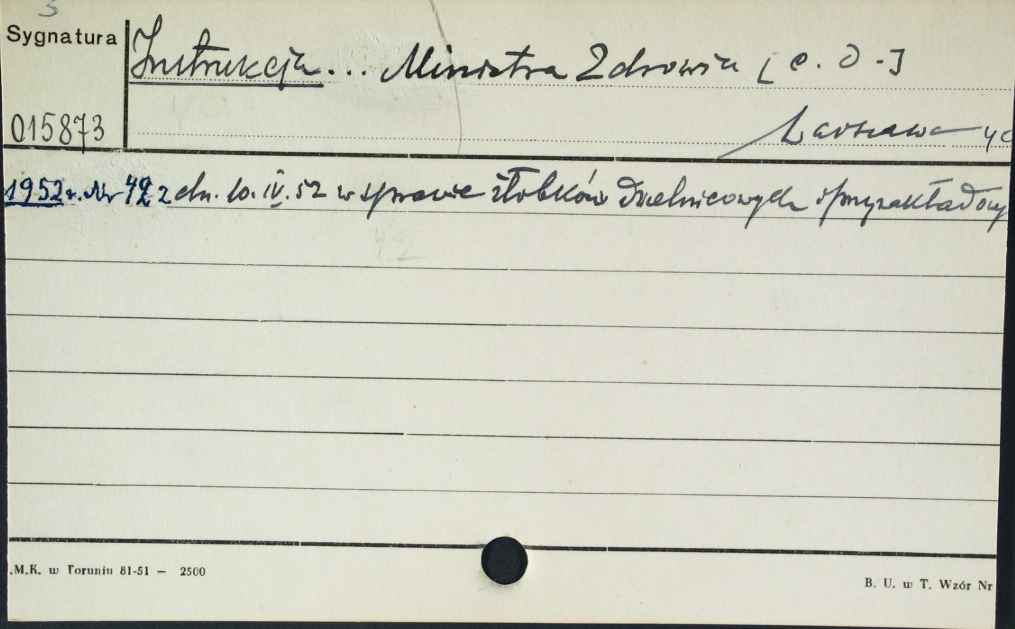 3
Sygnatura
Instrukcja... Ministra Zdrowia [c.d.]
015873
Warszawa 40
1952 r. Nr 42 z dn. 10.IV.52 w sprawie żłobków dzielnicowych i przyzakładowy
42
.M.K. w Toruniu 81-51 — 2500
B. U. w T. Wzór Nr